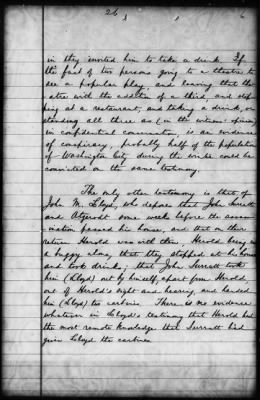 26
6
in they invited him to take a drink. If
the fact of two persons going to a theatre to
see a popular play, and leaving that the-
atre with the addition of a third, and stop-
ping at a restaurant, and taking a drink, or
standing all three as (in the witness' opinion)
in confidential conversation, is an evidence
of conspiracy, probably half of the population
of Washington City during the winter could be
convicted on the same testimony.
The only other testimony is that of
John M. Lloyd, who deposes that John Surratt
and Atzerodt some weeks before the assassi-
nation passed his house, and that on their
return Herold was with them, Herold being in
a buggy alone, that they stopped at his house
and took drinks; that John Surratt took
him (Lloyd) out by himself, apart from Herold,
out of Herold's sight and hearing, and handed
him (Lloyd) two carbines. There is no evidence
whatever in Lloyd's testimony that Herold had
the most remote knowledge that Surratt had
given Lloyd the carbines